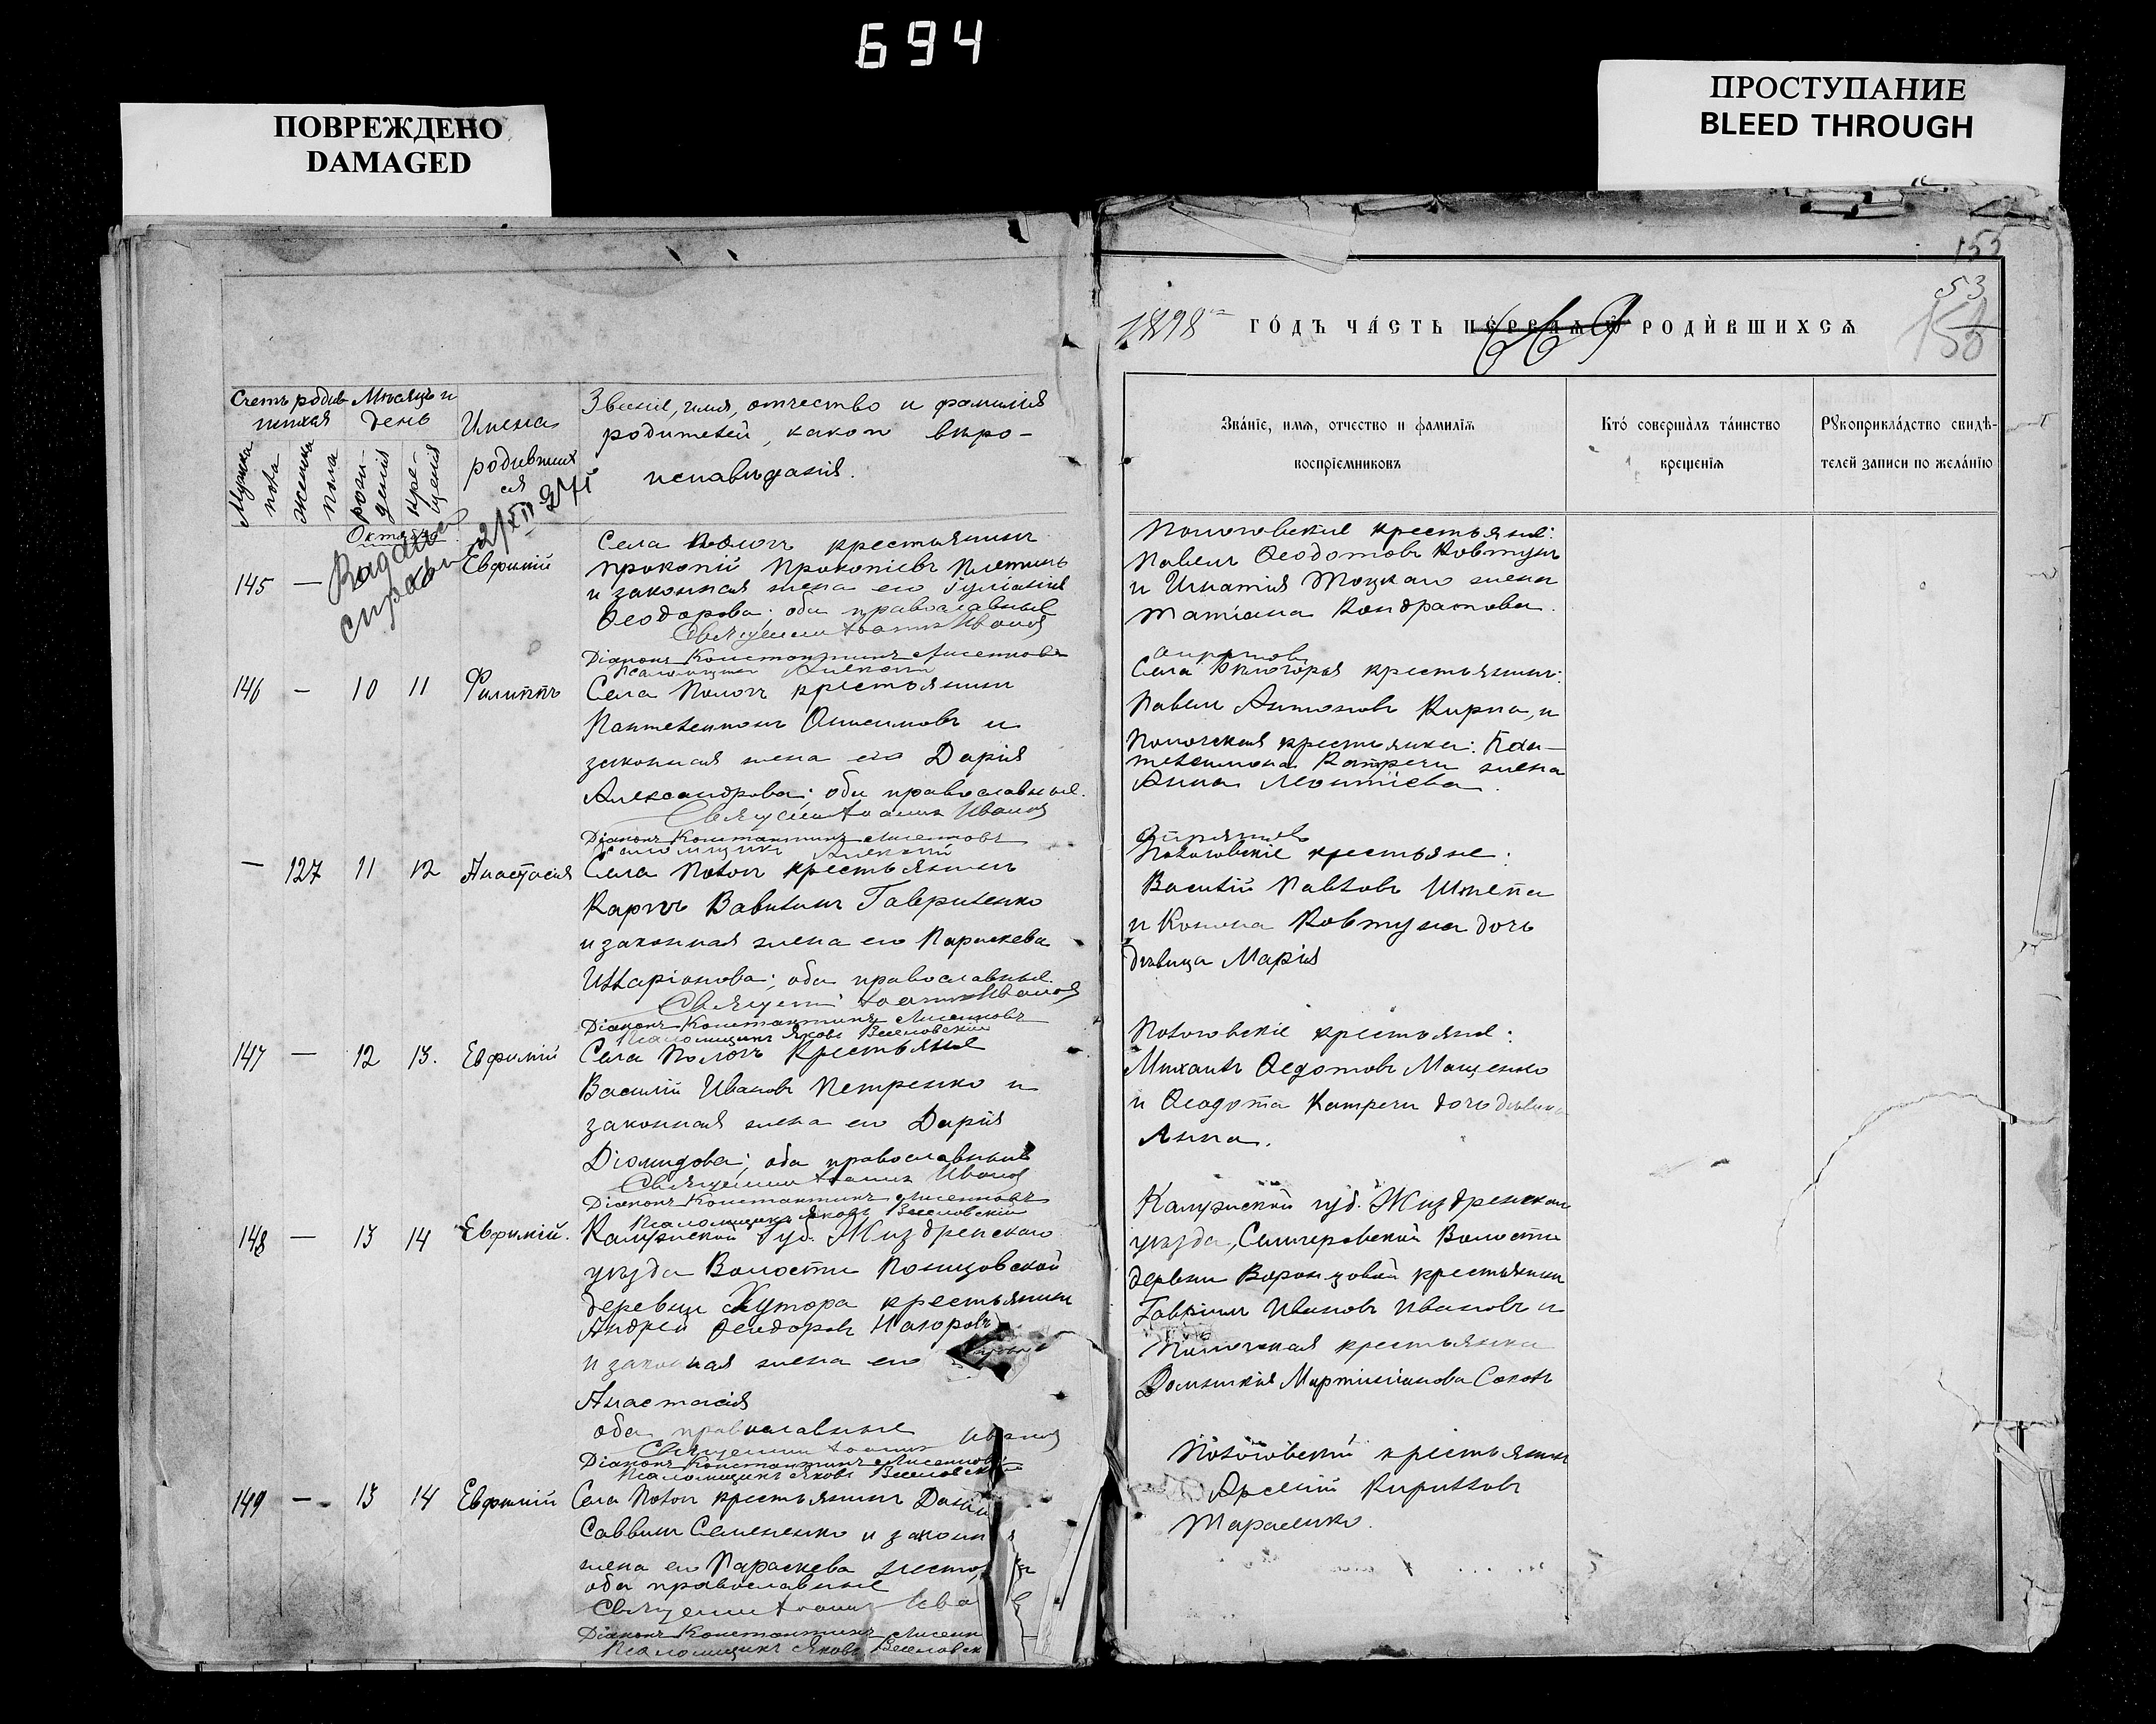 694
ПОВРЕЖДЕНО
DAMAGED
ПРОСТУПАНИЕ
BLEED THROUGH
Счетъ родив Мѣсяцъ и
шихся день
Имена
родивших
ся
Званіе, имя, отчество и фамилія
родителей, какого вѣро-
исповѣданія.
Мужска
пола
Женска
пола
рож-
денія
кре-
щенія
Октябрь
145 —
Евфимій
Села Пологъ крестьянинъ
Прокопій Прокопіевъ
и законная жена его Іуліанія
Ѳеодорова; оба православные
Священникъ Іоаннъ Ивановъ
Діаконъ Константинъ Лисенковъ
Псаломщикъ
146 — 10 11 Филиппъ
Села Пологъ крестьянинъ
Пантелеимонъ Онисимовъ и
законная жена его Дарія
Александрова; оба православные.
Священникъ Іоаннъ Ивановъ
Діаконъ Константинъ Лисенковъ
Псаломщикъ
— 127 11 12 Анастасія
Села Пологъ крестьянинъ
Карпъ Вавилинъ Гавриленко
и законная жена его Параскева
Илларіонова; оба православные.
Священникъ Іоаннъ Ивановъ
Діаконъ Константинъ Лисенковъ
Псаломщикъ Яковъ Веселовскій
147 — 12 13. Евфимій
Села Пологъ Крестьяне
Василій Ивановъ Петренко и
законная жена его Дарія
Діомидова; оба православные
Священникъ Іоаннъ Ивановъ
Діаконъ Константинъ Лисенковъ
Псаломщикъ Яковъ Веселовскій
148 — 13 14 Евфимій.
Калужской Губ. Жиздренскаго
уѣзда Волости
деревни Хутора крестьянинъ
Андрей Ѳеодоровъ
и законная жена его
Анастасія
оба православные
Священникъ Іоаннъ Ивановъ
Діаконъ Константинъ Лисенковъ
Псаломщикъ Яковъ Веселовскій
149 — 13 14 Евфимій
Села Пологъ крестьянинъ
Саввинъ Семененко и законн
жена его Параскева
оба православные
Священникъ Іоаннъ Ива
Діаконъ Константинъ Лисенк
Псаломщикъ Яковъ Веселовск
155
53
1898 го́дъ ча́сть пе́рвая ѡ роди́вшихсѧ
669
Зва́ніе, имѧ, отчество и фамилїѧ
воспрїемниковъ
Кто́ совершалъ та́инство
крещенїѧ
Рꙋкоприкла́дство свидѣ-
телей записи по жела́нїю
Пологовскіе крестьяне:
Павелъ Ѳеодотовъ Ковтунъ
и Игнатія жена
Татіана Кондратова.
Села Бѣлогорья крестьянинъ:
Павелъ Антоновъ Кирпа, и
Пологская крестьянка: Пан-
телеимона Катречи жена
Анна Леонтіева.
Пологовскіе крестьяне:
Василій Павловъ Шпета
и Конона Ковтуна дочь
дѣвица Марія
Пологовскіе крестьяне:
Михаилъ Ѳедотовъ Мащенко
и Ѳеодота Катречи дочь дѣвица
Анна.
Калужской губ. Жиздренскаго
уѣзда, Волости
деревни крестьянинъ
Гавріилъ Ивановъ Ивановъ и
Пологская крестьянка
Домникія Мартиніанова Соколъ
Пологовскій крестьянинъ
Арсеній Кирилловъ
Тарасенко.